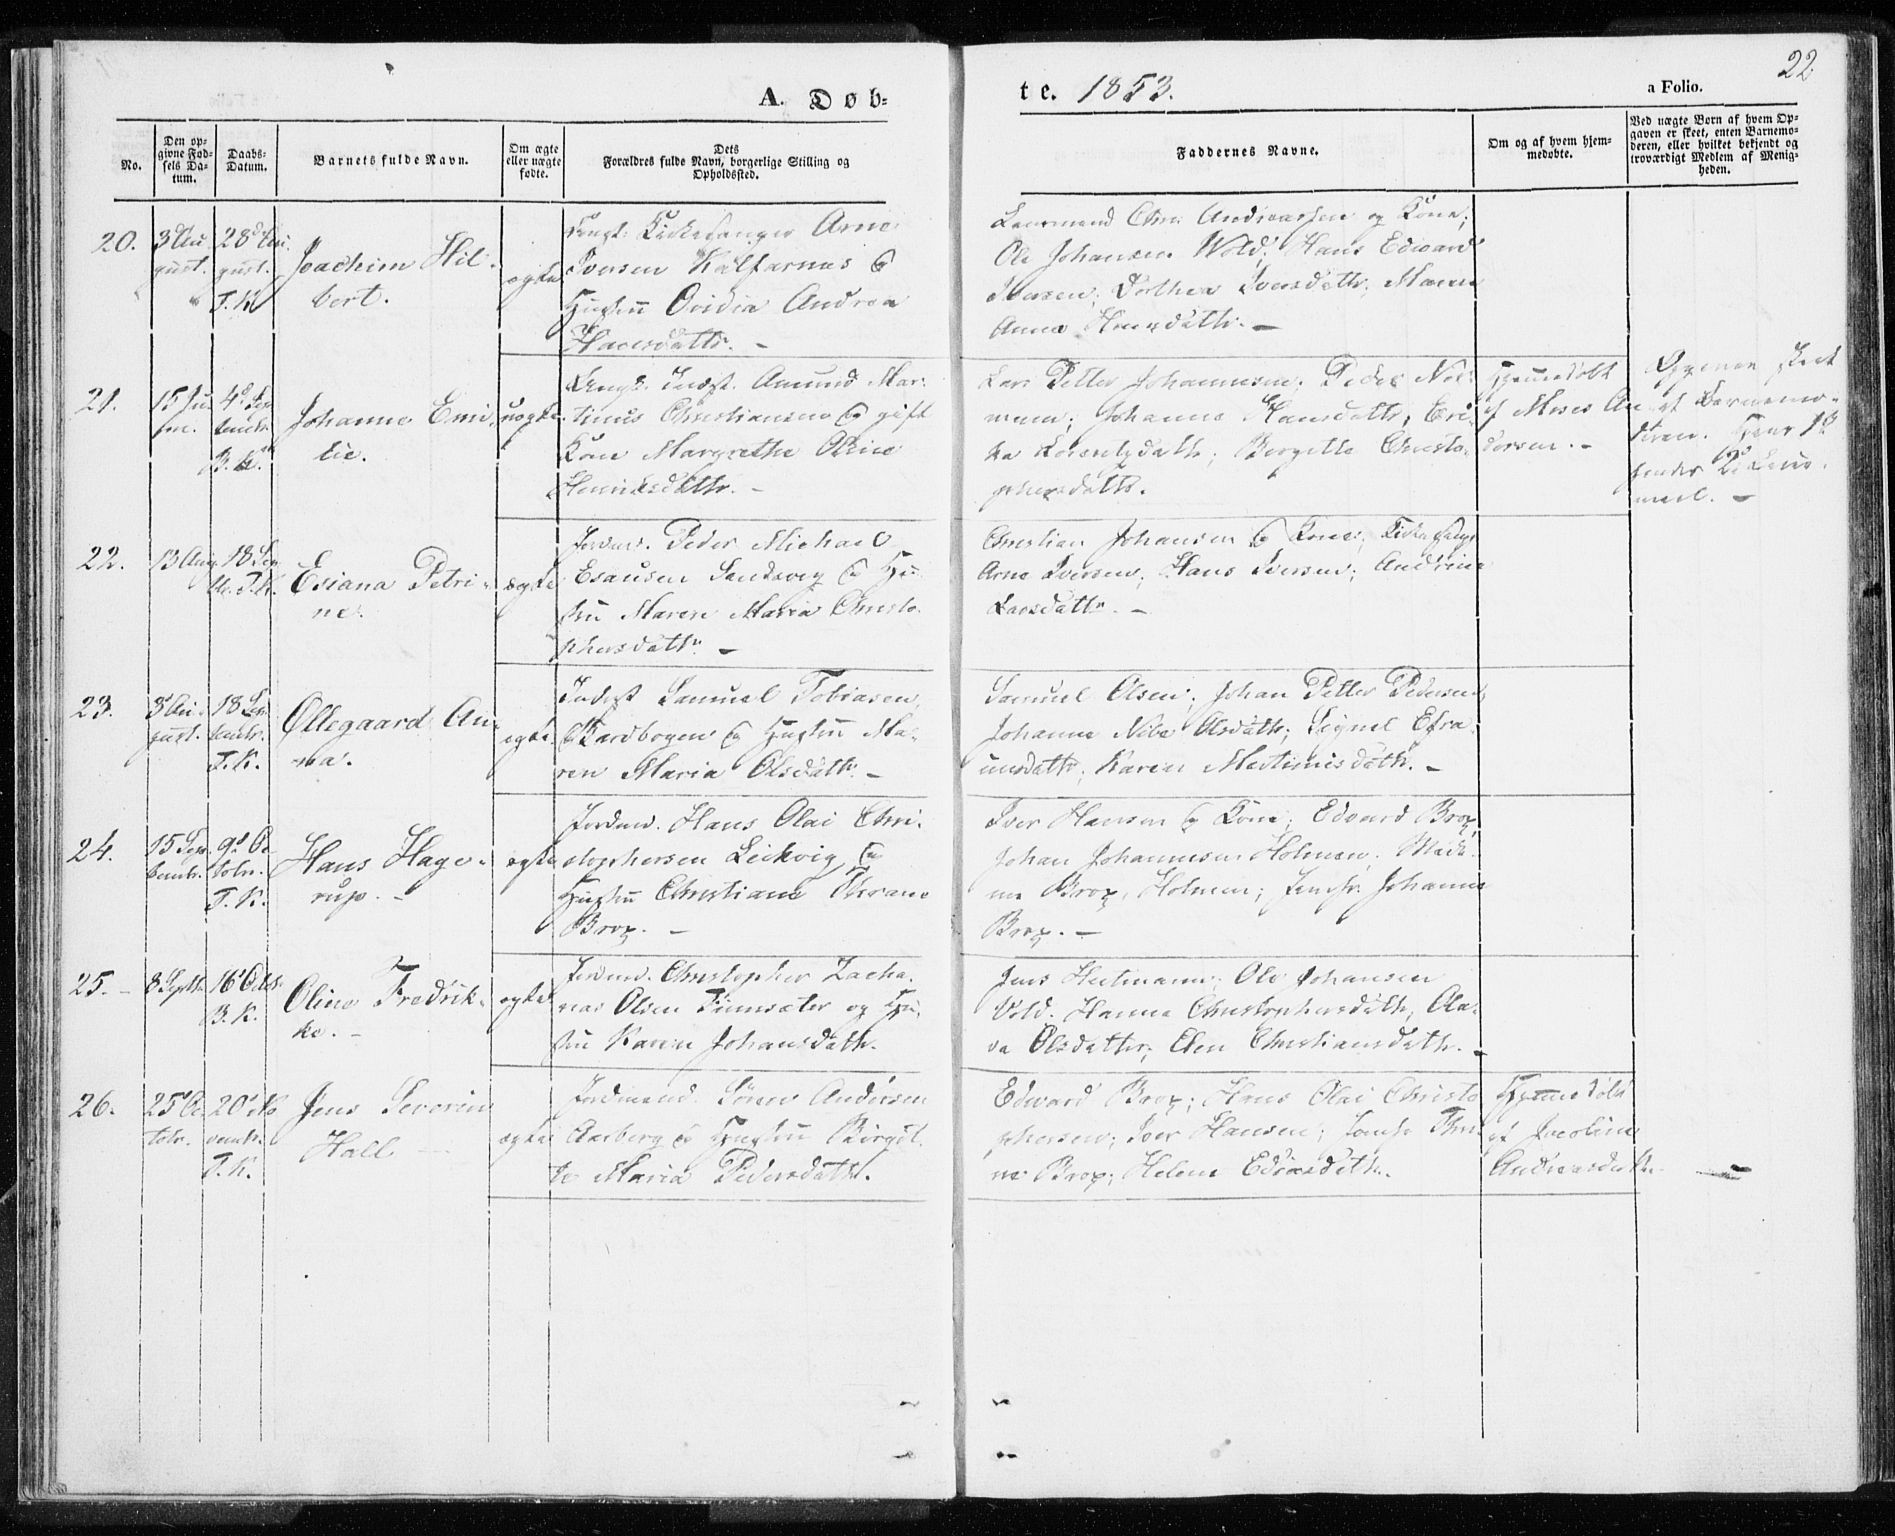 22
A. Døb-
te. 1853.
a Folio.
No.
Den op-
givne Fød-
sels Da-
tum.
Daabs-
Datum.
Barnets fulde Navn.
Om ægte
eller uægte
fødte.
Dets
Forældres fulde Navn, borgerlige Stilling og
Opholdssted.
Faddernes Navne.
Om og af hvem hjem-
medøbte.
Ved uægte Børn af hvem Op-
gaven er skeet, enten Barnemo-
deren, eller hvilket bekjendt og
troværdigt Medlem af Menig-
heden.
20.
3 Au
gust.
28d Au
gust.
T. K
Joachim Hil-
bert.
ægte
Kirkesanger Arne
Iversen Kalfarnes &
Hustru Ovidia Andrea
Hansdattr. -
Leensmand Chr. Andreassen og Kone;
Ole Johansen Wold; Hans Edward
Iversen; Dorthea Iversdattr; Maren
Anna Hansdattr. -
21.
15 Ju
4d Sep
tembr.
B. K.
Johanne Emi-
lie.
uægte
Ungk. Indst. Amund Mar-
tinus Christiansen & gift
Kone Margrethe Oline
Henriksdattr. -
Lars Petter Johannesen; Peder Nor-
mann; Johanna Hansdattr; Eri-
ka Lorentzdattr; Bergitte Christo-
phersdattr.
Hjemmedøbt
af Moses An
dersen. -
Opgaven skeet
af Barnemo-
deren. Hans 1ste
hendes 2de Leier-
maal. -
22.
13 Aug
18 Sep
tbr. T. K.
Esiana Petri-
ne.
ægte
Jordmd. Peder Michael
Esausen Sandsvog & Hu-
stru Maren Maria Christo-
phersdattr. -
Christian Johansen & Kone; Kirkesanger
Arne Iversen; Hans Iversen; Andrine
Larsdattr. -
23.
3d Au-
gust.
18 Sep
tembr.
T. K.
Øllegaard An-
na.
ægte
Inderst Samuel Tobiasen
Bardbogen & Hustru Ma-
ren Maria Olsdattr. -
Samuel Olsen; Johan Petter Pedersen;
Johanna Olsdattr; Signel Efra-
imsdattr; Karen Martinusdattr. -
24.
15 Sep-
tembr.
9d Oc
tobr.
T. K.
Hans Hage-
rup. -
ægte
Jordmd. Hans Olai Chri-
stophersen Leikvig &
Hustru Christiane Thrane
Brox. -
Iver Hansen & Kone; Edvard Brox,
Johan Johannesen Holmen; Mada-
me Brox, Holmen; Jomfr. Johanna
Brox. -
25. -
8 Septbr
16d Octbr
B. K.
Oline Fredrik-
ke. -
ægte
Jordmd. Christopher Zacha-
rias Olsen Finnsæter og Hu-
stru Karen Johansdattr.
Jens Heitmann; Ole Johansen
Vold. Hanna Christophersdattr, Ola-
va Olsdatter; Elen Christiansdattr. -
26.
25d Oc
tobr.
20d No
vembr.
T. K.
Jens Severin
Hall -
ægte
Jordmand. Sören Andersen
Aarberg & Hustru Birgit-
te Maria Pedersdattr.
Edward Brox; Hans Olai Christo
phersen; Iver Hansen; Jomfr Thri-
ne Brox; Helene Edisdattr.
Hjemmedøbt
af Jacobine
Andreasdattr. -